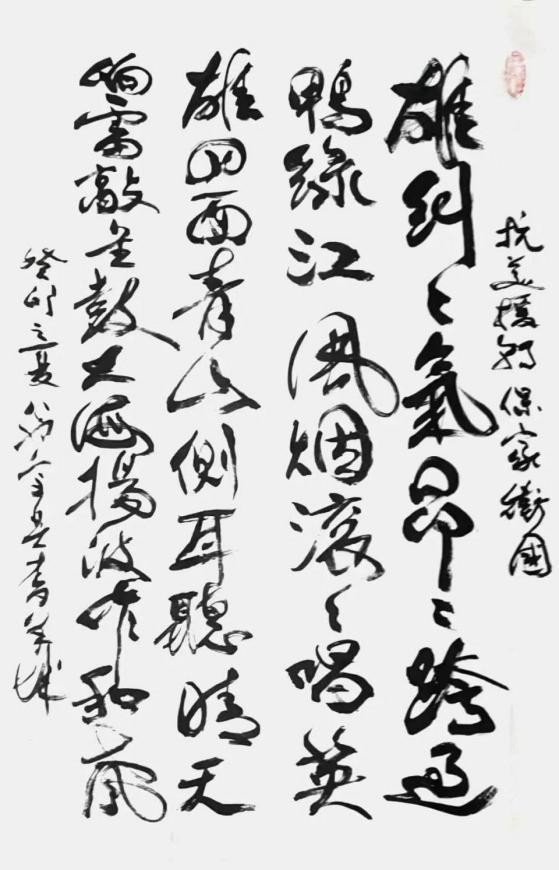 抗美援朝保家衛國
雄糾々氣昂々跨過
鴨綠江風烟滚々唱英
雄四面青山側耳聽晴天
响雷敲金鼓大海揚波作和風
癸卯之夏